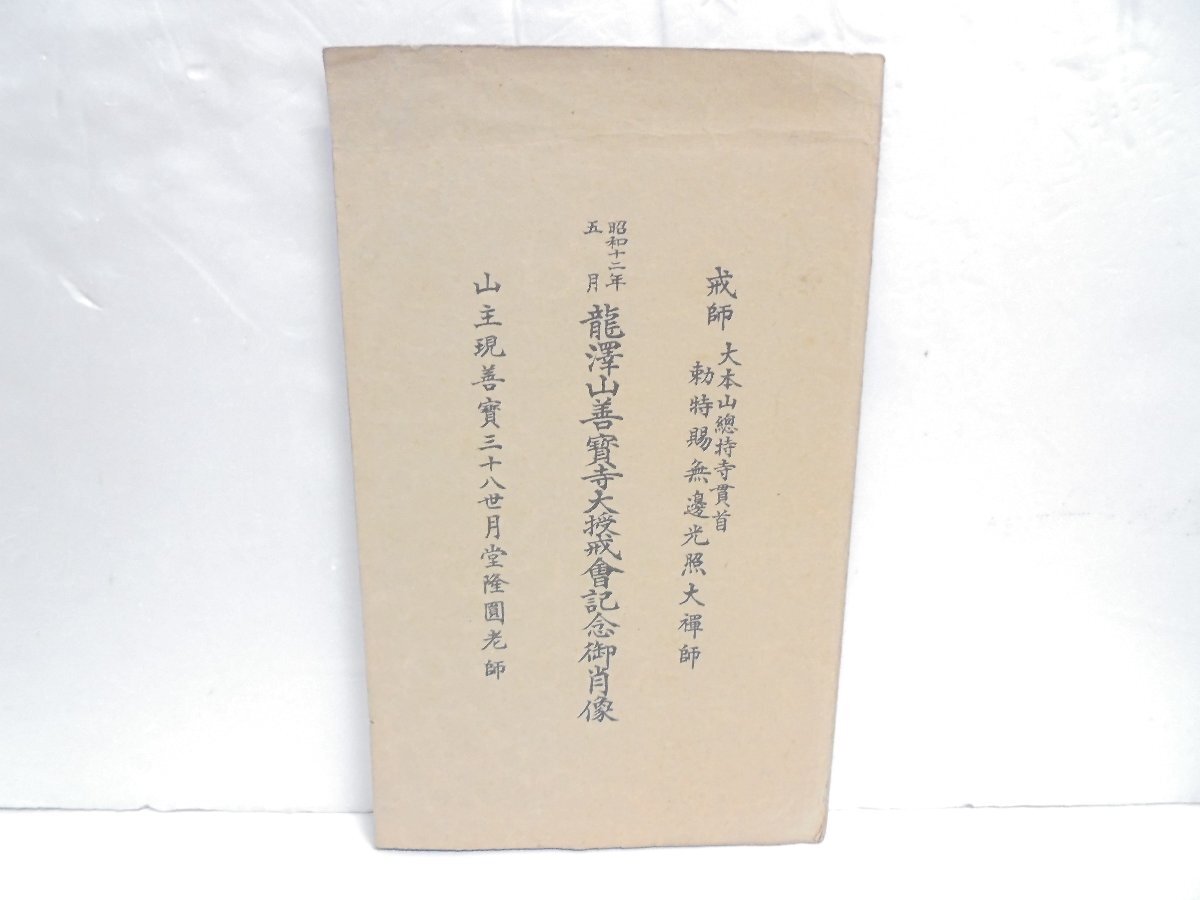 戒師
大本山總持寺貫首
勅特賜無邊光照大禪師
昭和十二年
五月
龍澤山善寶寺大授戒會記念御肖像
山主現善寶三十八世月堂隆圓老師